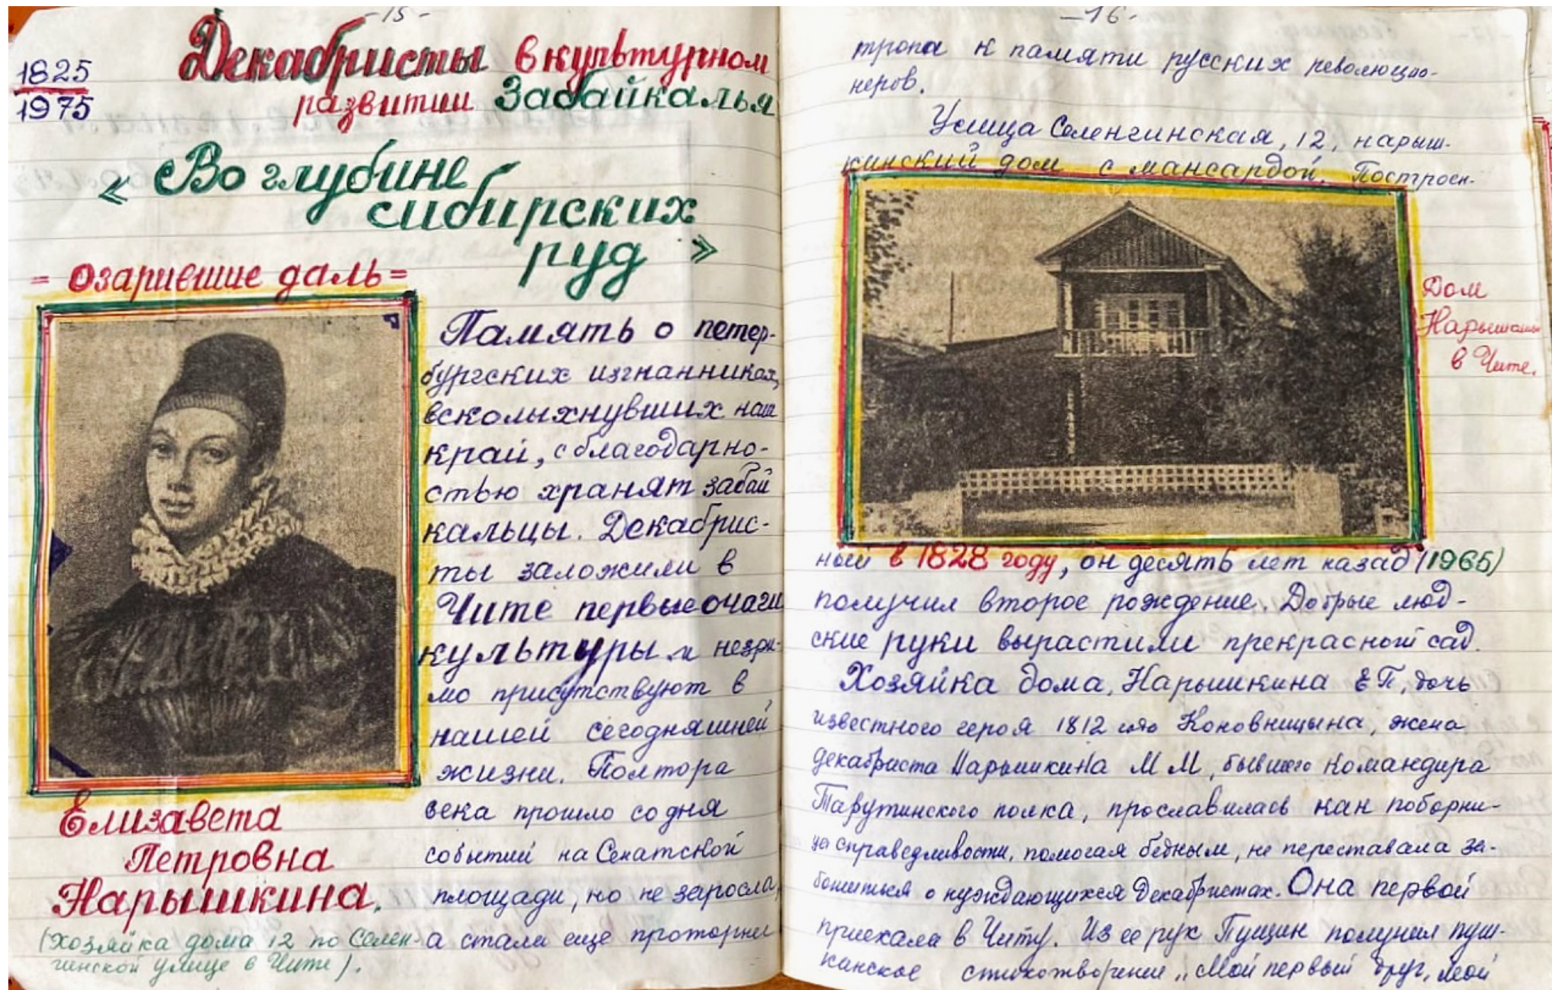 -15-
1825
1975
Декабристы в культурном
развитии Забайкалья
«Во глубине
сибирских
руд»
= Озарившие даль =
Память о петер-
бургских изгнанниках,
всколыхнувших наш
край, с благодарно-
стью хранят забай
кальцы. Декабрис-
ты заложили в
Чите первые очаги
культуры и незри-
мо присутствуют в
нашей сегодняшней
жизни. Полтора
века прошло со дня
событий на Сенатской
площади, но не заросла,
а стала еще проторней
Елизавета
Петровна
Нарышкина.
(Хозяйка дома 12 по Селен-
гинской улице в Чите).
-16-
тропа к памяти русских революцио-
неров.
Улица Селенгинская, 12, нарыш-
кинский дом с мансардой. Построен-
Дом
Нарышкины
в Чите.
ный в 1828 году, он десять лет назад (1965)
получил второе рождение. Добрые люд-
ские руки вырастили прекрасный сад.
Хозяйка дома, Нарышкина Е П, дочь
известного героя 1812 года Коновницына, жена
декабриста Нарышкина М М, бывшего командира
Тарутинского полка, прославилась как поборни-
ца справедливости, помогая бедным, не переставала за-
ботиться о нуждающихся декабристах. Она первой
приехала в Читу. Из ее рук Пущин получил пуш-
кинское стихотворение „Мой первый друг, мой